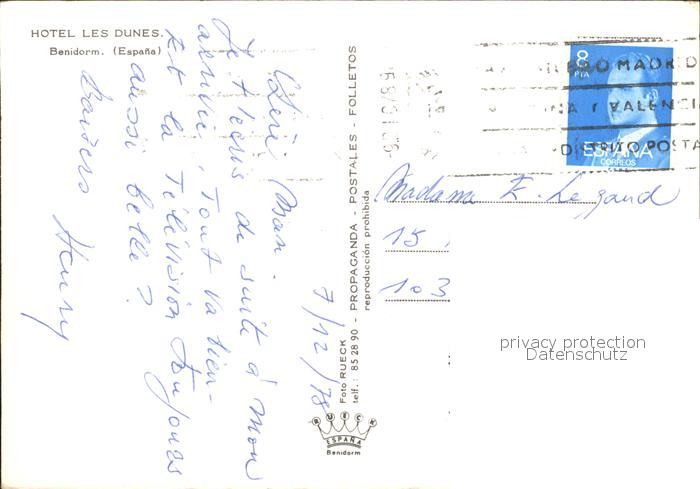 HOTEL LES DUNES.
Benidorm. (España)
7/12/78
Chéri Man.
Je t'ecris de suite à mon
arrivée, Tout va bien -
Et la Télévision toujours
aussi belle ?
Baisers
Henry
Foto RUECK
telf.: 85 28 90 - PROPAGANDA - POSTALES - FOLLETOS
reproducción prohibida
RUECK
ESPAÑA
Benidorm
8
PTA
ESPAÑA
CORREOS
MADRID
VALENCI
DISTRITO POSTA
Madame E. Legaud
15,
103
privacy protection
Datenschutz